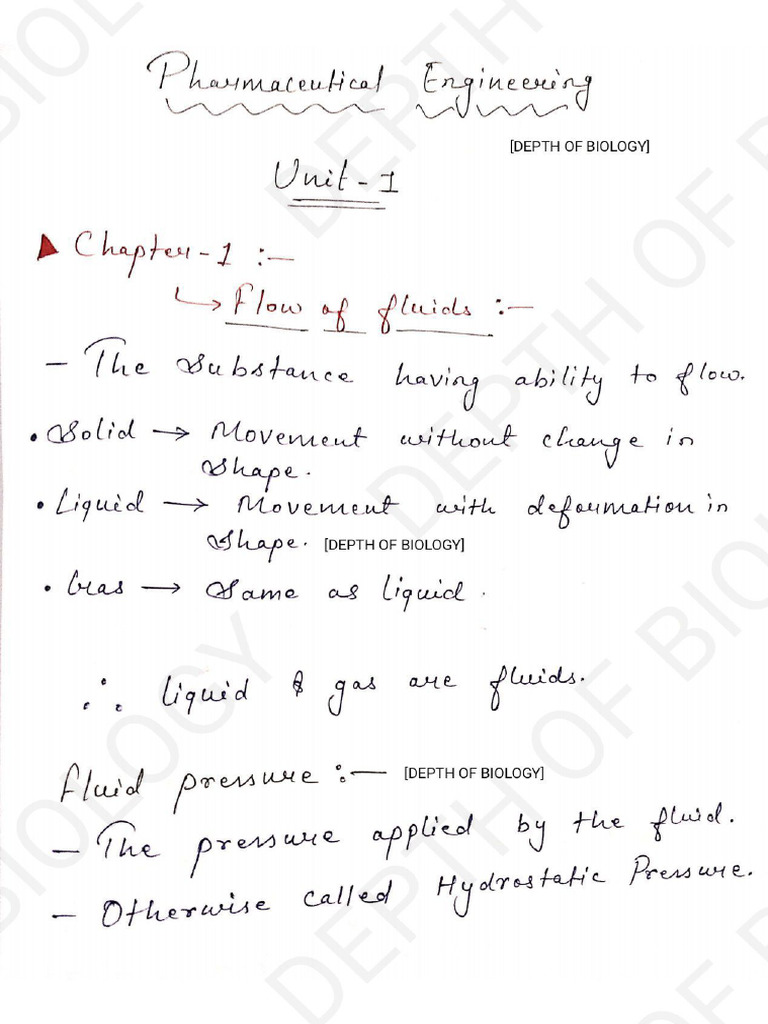 Pharmaceutical Engineering
[DEPTH OF BIOLOGY]
Unit-1
▲ Chapter-1 :-
↳ Flow of fluids :-
- The Substance having ability to flow.
• Solid → Movement without change in
Shape.
• Liquid → Movement with deformation in
Shape. [DEPTH OF BIOLOGY]
• Gas → Same as liquid.
∴ liquid & gas are fluids.
Fluid pressure :- [DEPTH OF BIOLOGY]
- The pressure applied by the fluid.
- Otherwise called Hydrostatic Pressure.
DEPTH OF BIOLOGY